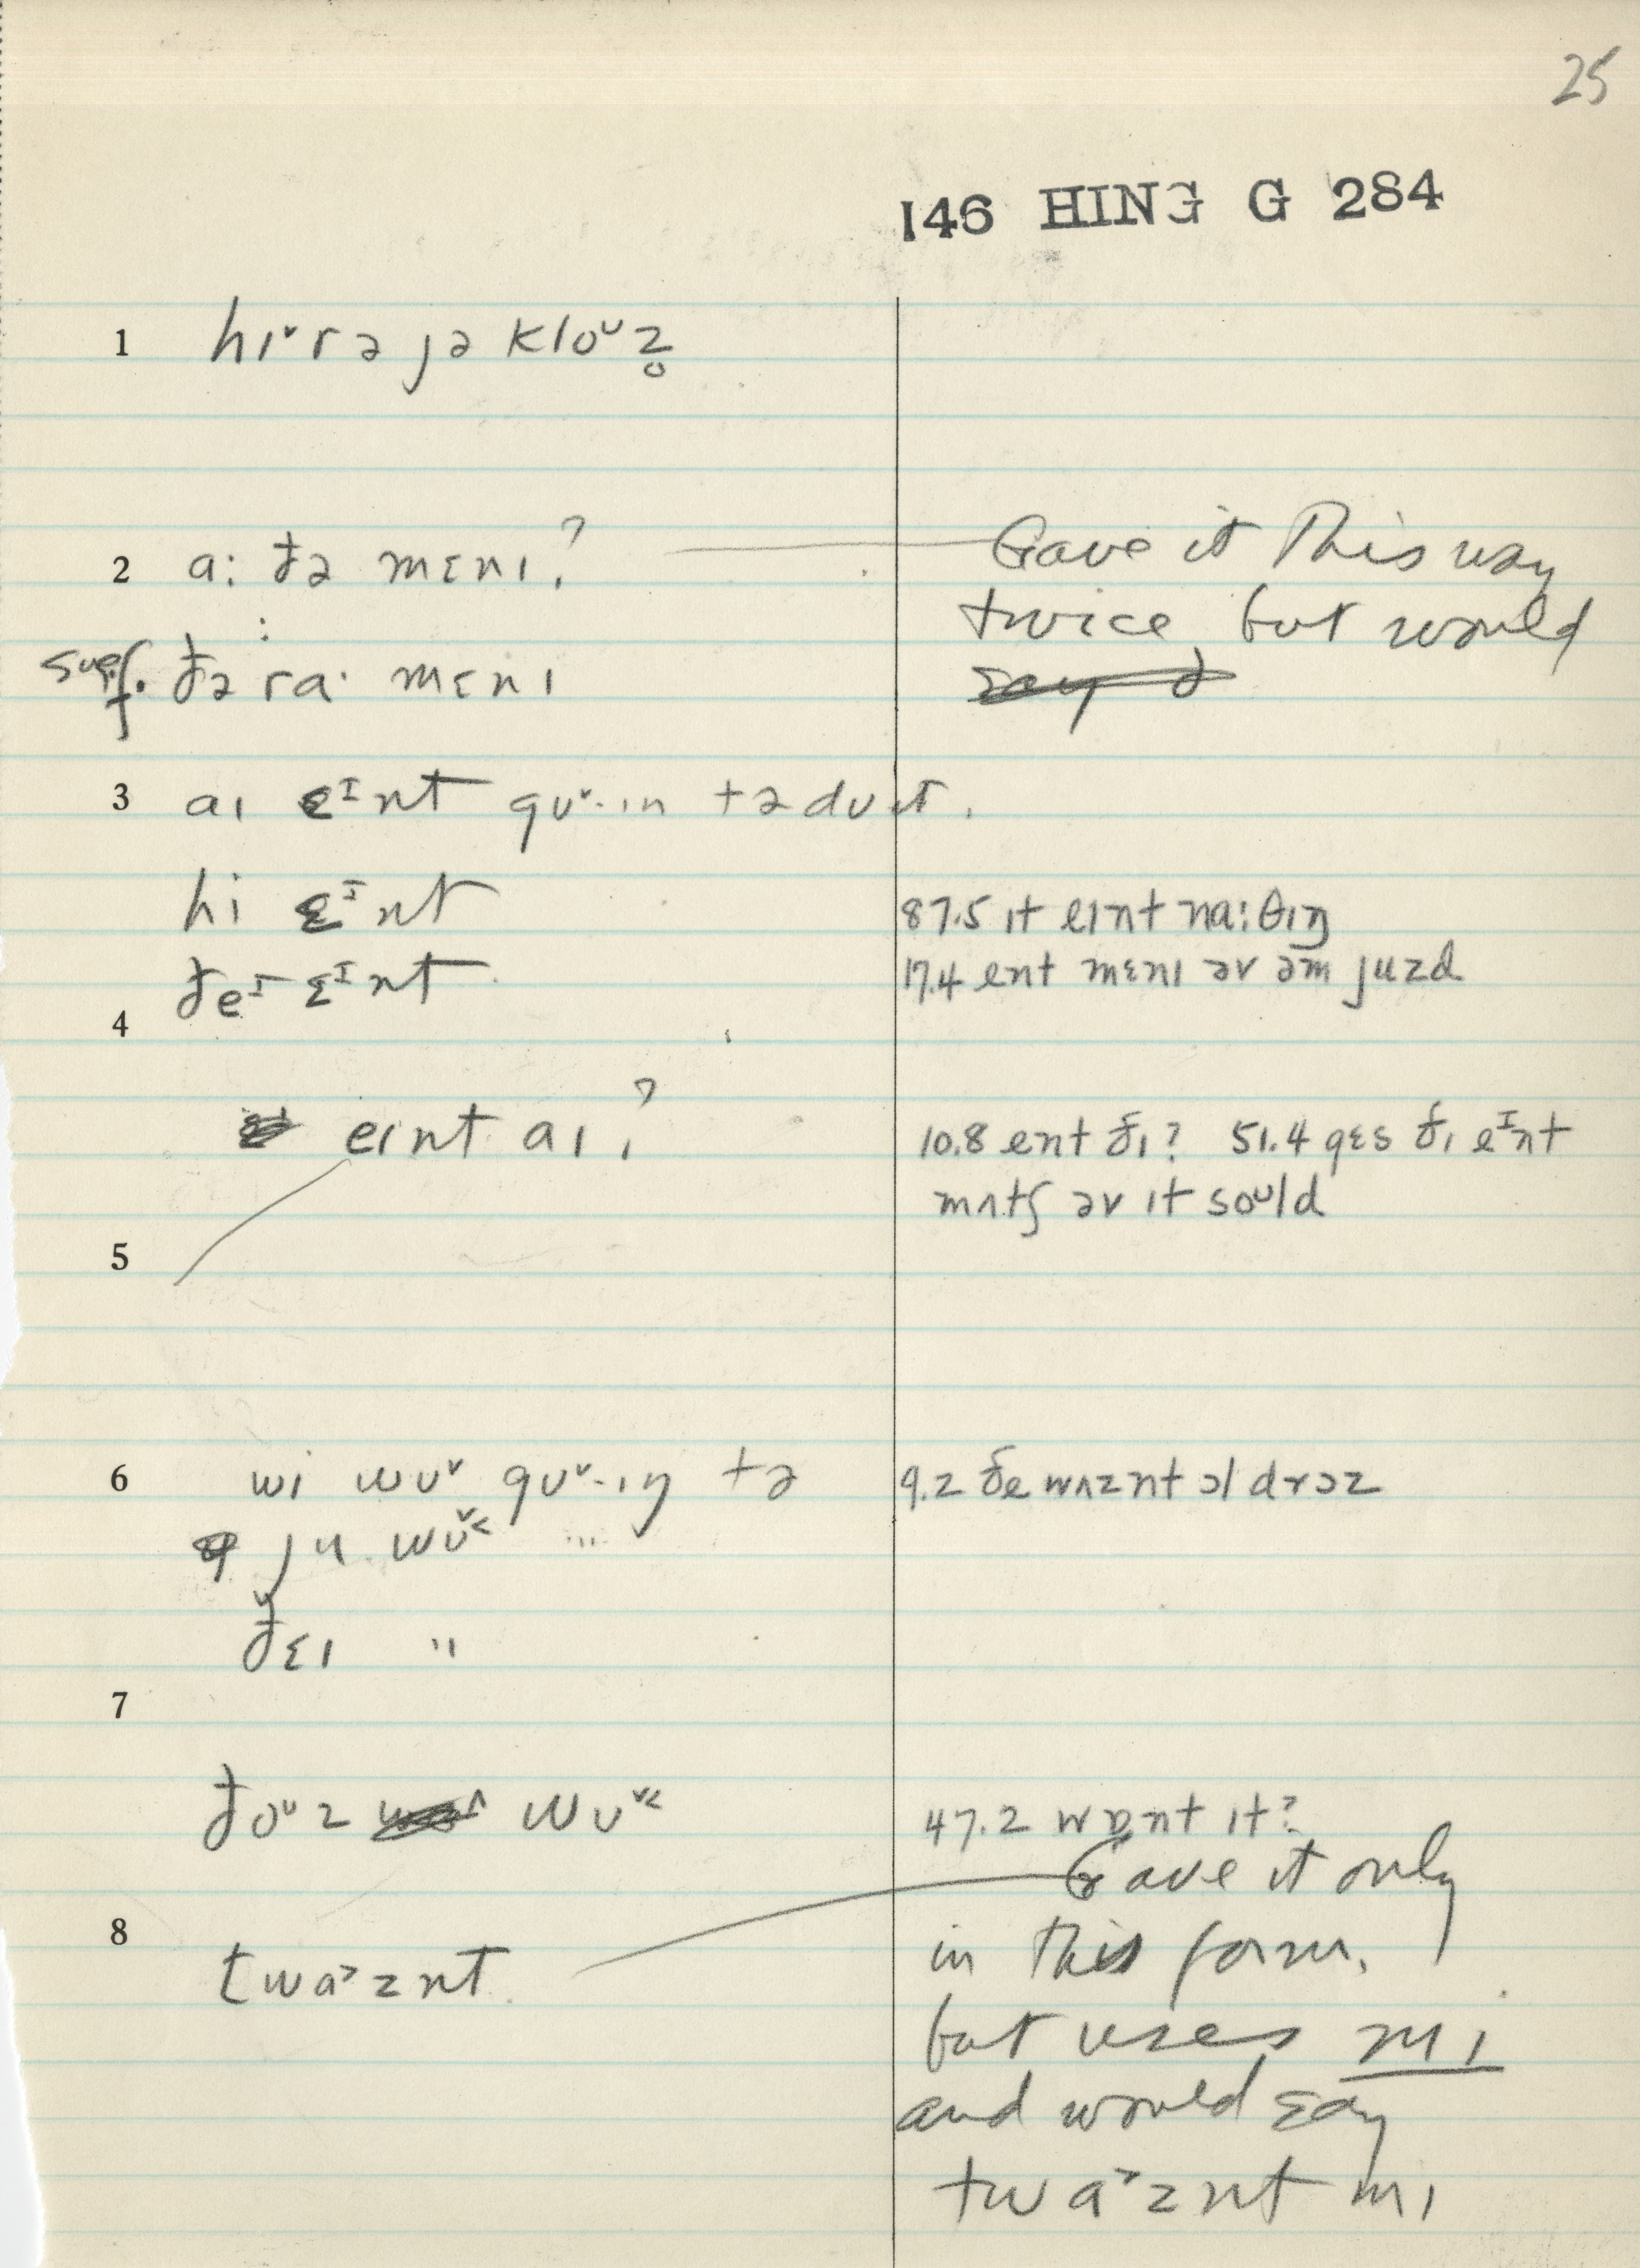 25
146 HING G 284
1 hɪˇr ə jə kloᴜz̥
2 a: ðə mɛnɪ? Gave it This way
twice but would
sug. ðə ra· mɛnɪ say ð
3 aɪ ɛᴵnt gʊˇ·ɪn tə dʊ ɪt.
hi ɛᴵnt 87.5 ɪt eɪnt na:θɪŋ
ðeᴵ ɛᴵnt 17.4 ent mɛnɪ əv əm juzd
4
eɪnt aɪ? 10.8 ent ðɪ? 51.4 gɛs ðɪ eᴵnt
mʌtʃ əv ɪt soᴜld
5
6 wi wʊˇ gʊˇ·ɪŋ tə 9.2 ðe wʌznt ɔl drɔz
ju wʊˇ˂ ...
ðɛɪ "
7
ðoᴜz wʊˇ˂ 47.2 wɒnt ɪt?
Gave it only
8 in this form.
twa˃znt
but uses mɪ
and would say
twa˃znt mɪ